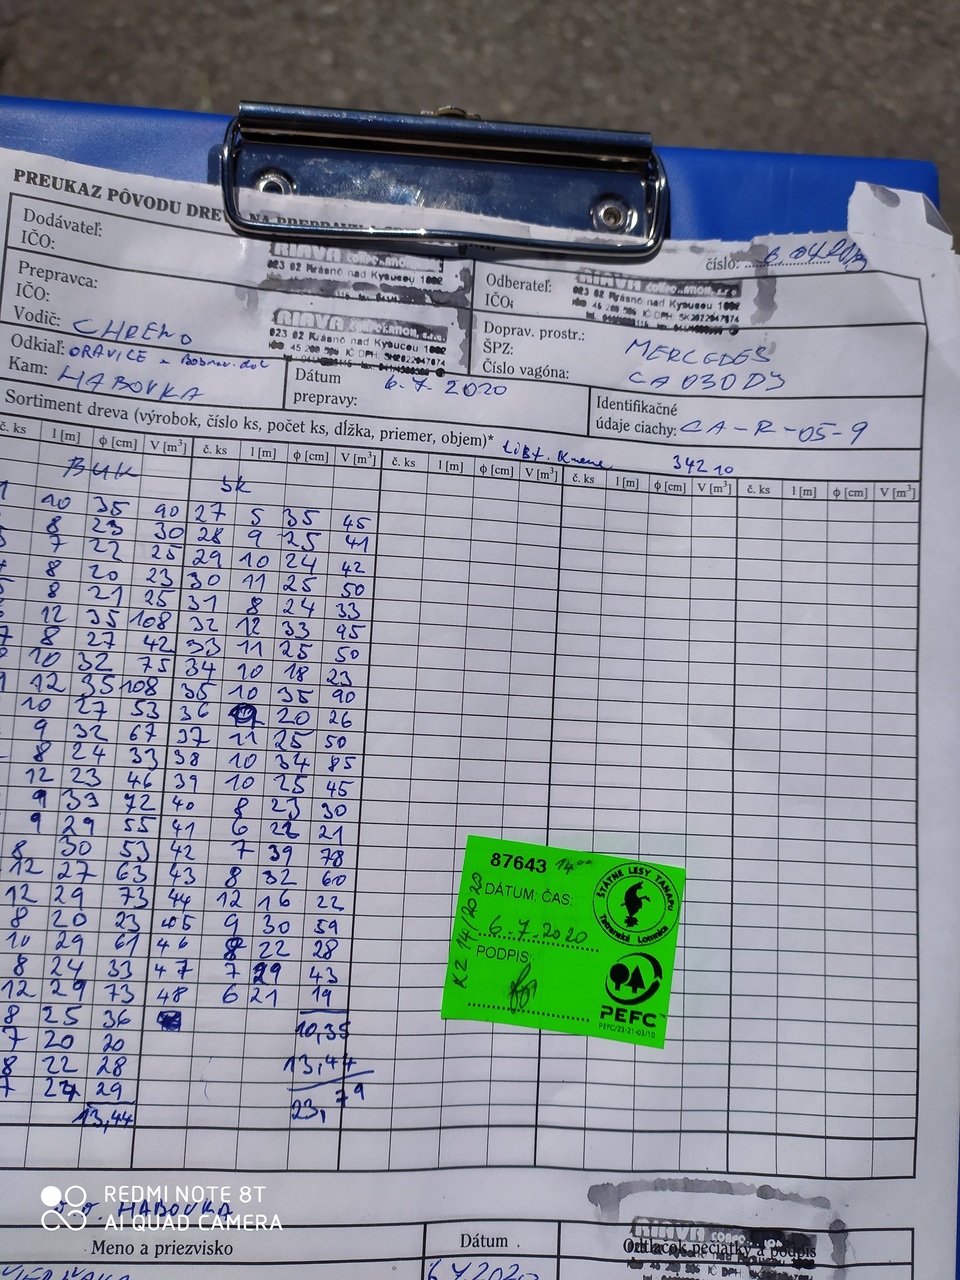 PREUKAZ PÔVODU
Dodávateľ:
IČO:
RIAVA CORPORATION, s.r.o.
023 02 Krásno nad Kysucou 1002
číslo:
Odberateľ:
IČO:
RIAVA CORPORATION, s.r.o.
023 02 Krásno nad Kysucou 1002
Prepravca:
IČO:
RIAVA CORPORATION, s.r.o.
023 02 Krásno nad Kysucou 1002
Vodič:
Doprav. prostr.: MERCEDES
ŠPZ: CA030DY
Číslo vagóna:
Odkiaľ: ORAVICE
Kam: HABOVKA
Dátum prepravy: 6.7.2020
Identifikačné
údaje ciachy: CA-R-05-9
Sortiment dreva (výrobok, číslo ks, počet ks, dĺžka, priemer, objem)*
34210
č. ks l [m] ϕ [cm] V [m³] č. ks l [m] ϕ [cm] V [m³] č. ks l [m] ϕ [cm] V [m³] č. ks l [m] ϕ [cm] V [m³] č. ks l [m] ϕ [cm] V [m³]
BUK
10 35 90 27 5 35 45
8 23 30 28 9 25 41
7 22 25 29 10 24 42
8 20 23 30 11 25 50
8 21 25 31 8 24 33
12 35 108 32 12 33 95
8 27 42 33 11 25 50
10 32 75 34 10 18 23
12 35 108 35 10 35 90
10 27 53 36 20 26
9 32 67 37 11 25 50
8 24 33 38 10 34 85
12 23 46 39 10 25 45
9 33 72 40 8 23 30
9 29 55 41 6 22 21
8 30 53 42 7 39 78
12 27 63 43 8 32 60
12 29 73 44 12 16 22
8 20 23 45 9 30 59
10 29 61 46 8 22 28
8 24 33 47 7 29 43
12 29 73 48 6 21 19
8 25 36
7 20 20 10,35
8 22 28 13,44
7 29
13,44 23,79
87643 14
DÁTUM: ČAS:
6.7.2020
PODPIS:
KZ 14/2020
ŠTÁTNE LESY TANAPu
Tatranská Lomnica
PEFC
PEFC/23-21-03/10
HABOVKA
Meno a priezvisko
Dátum
Odtlačok pečiatky a podpis
RIAVA
6.7.2020
REDMI NOTE 8T
AI QUAD CAMERA